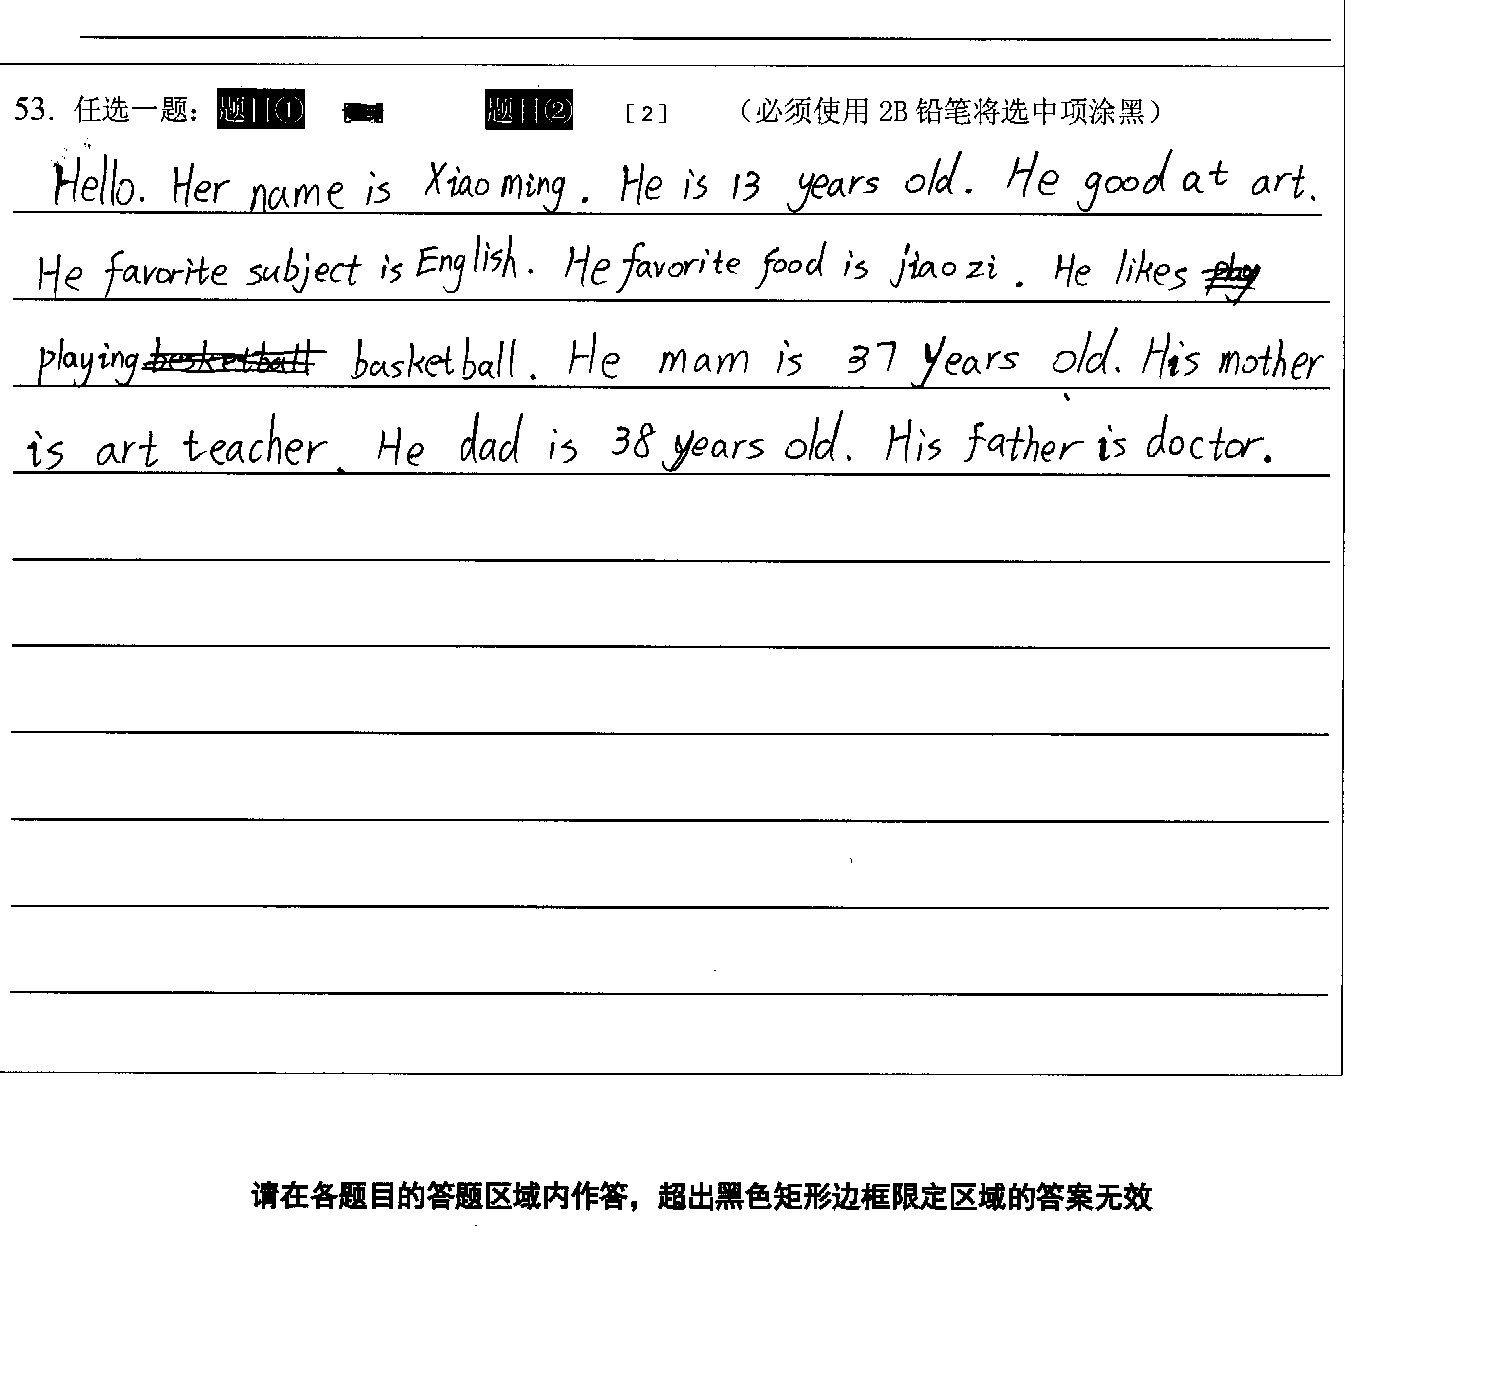 53. 任选一题： 题目① 题目② [2] （必须使用 2B 铅笔将选中项涂黑）
Hello. Her name is Xiaoming. He is 13 years old. He good at art.
He favorite subject is English. He favorite food is jiaozi. He likes play
playing besketball basketball. He mam is 37 years old. His mother
is art teacher. He dad is 38 years old. His father is doctor.
请在各题目的答题区域内作答，超出黑色矩形边框限定区域的答案无效